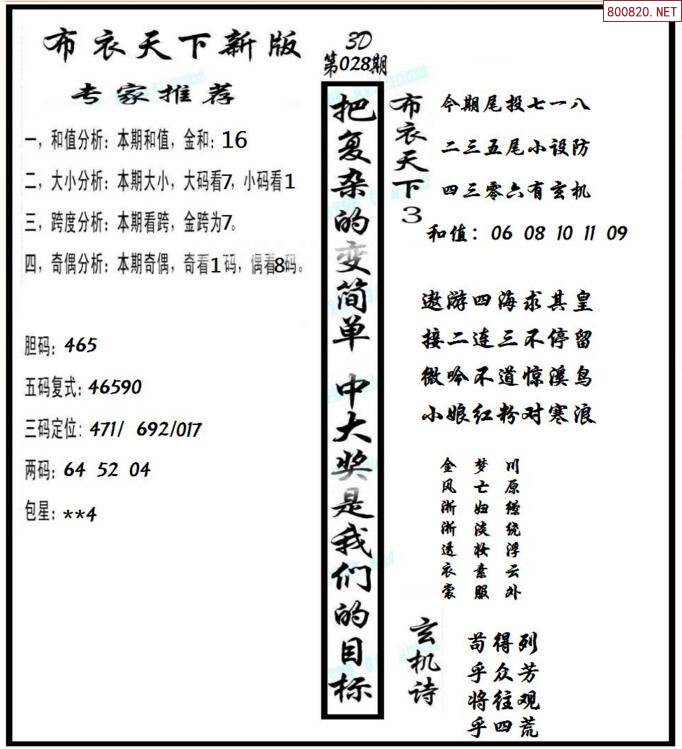 800820.NET
布衣天下新版
专家推荐
一，和值分析：本期和值，金和：16
二，大小分析：本期大小，大码看7，小码看1
三，跨度分析：本期看跨，金跨为7。
四，奇偶分析：本期奇偶，奇看1码，偶看8码。
胆码：465
五码复式：46590
三码定位：471/ 692/017
两码：64 52 04
包星：**4
3D
第028期
把复杂的变简单 中大奖是我们的目标
布衣天下3
今期尾投七一八
二三五尾小设防
四三零六有玄机
和值：06 08 10 11 09
遨游四海求其皇
接二连三不停留
微吟不道惊溪鸟
小娘红粉对寒浪
金 梦 川
风 亡 原
渐 妇 缭
渐 淡 绕
透 妆 浮
衣 素 云
裳 服 外
玄机诗
苟得列
乎众芳
将往观
乎四荒